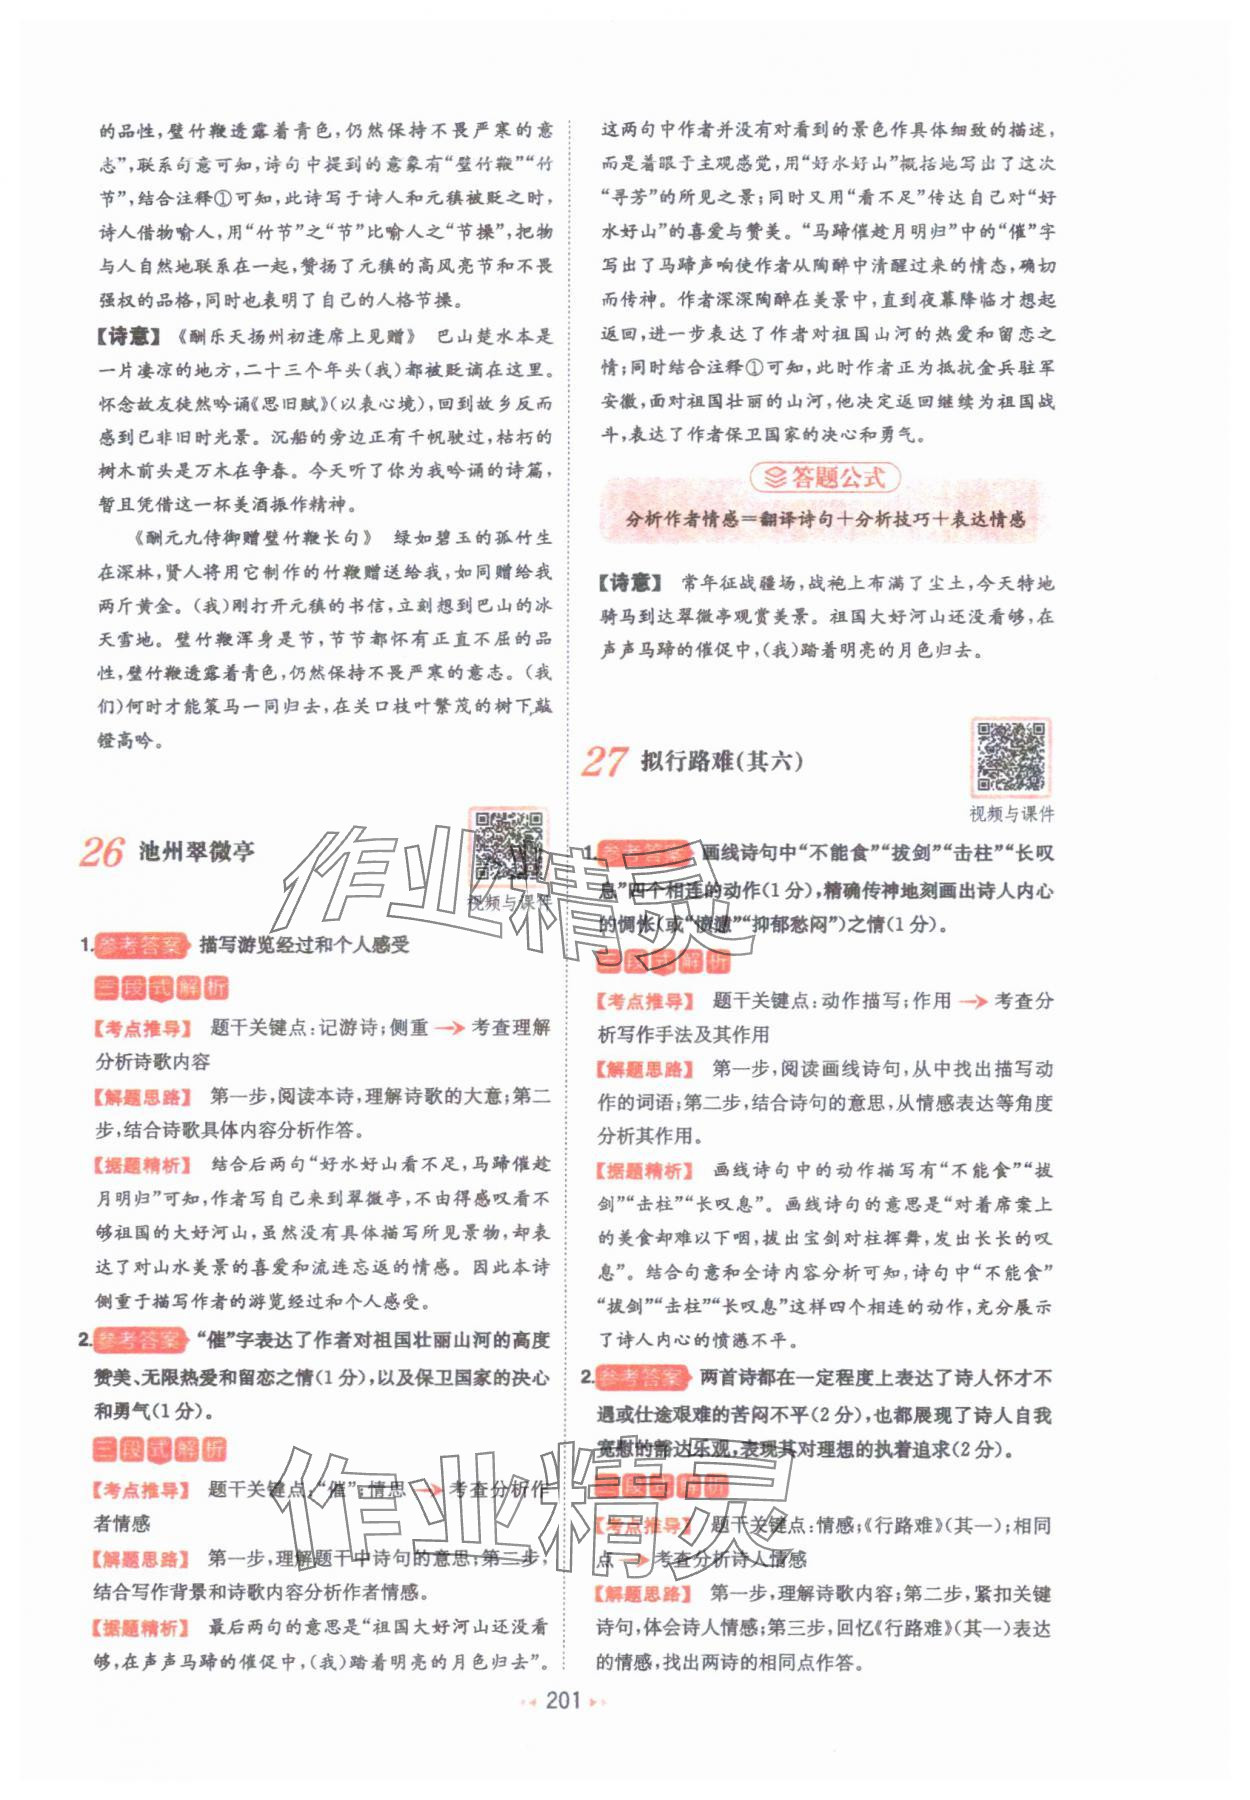 的品性,璧竹鞭透露着青色,仍然保持不畏严寒的意
志”,联系句意可知,诗句中提到的意象有“璧竹鞭”“竹
节”,结合注释①可知,此诗写于诗人和元稹被贬之时,
诗人借物喻人,用“竹节”之“节”比喻人之“节操”,把物
与人自然地联系在一起,赞扬了元稹的高风亮节和不畏
强权的品格,同时也表明了自己的人格节操。
【诗意】《酬乐天扬州初逢席上见赠》 巴山楚水本是
一片凄凉的地方,二十三个年头(我)都被贬谪在这里。
怀念故友徒然吟诵《思旧赋》(以表心境),回到故乡反而
感到已非旧时光景。沉船的旁边正有千帆驶过,枯朽的
树木前头是万木在争春。今天听了你为我吟诵的诗篇,
暂且凭借这一杯美酒振作精神。
《酬元九侍御赠璧竹鞭长句》 绿如碧玉的孤竹生
在深林,贤人将用它制作的竹鞭赠送给我,如同赠给我
两斤黄金。(我)刚打开元稹的书信,立刻想到巴山的冰
天雪地。璧竹鞭浑身是节,节节都怀有正直不屈的品
性,璧竹鞭透露着青色,仍然保持不畏严寒的意志。(我
们)何时才能策马一同归去,在关口枝叶繁茂的树下敲
镫高吟。
26 池州翠微亭
视频与课件
1.参考答案 描写游览经过和个人感受
三段式解析
【考点推导】 题干关键点:记游诗;侧重→考查理解
分析诗歌内容
【解题思路】 第一步,阅读本诗,理解诗歌的大意;第二
步,结合诗歌具体内容分析作答。
【据题精析】 结合后两句“好水好山看不足,马蹄催趁
月明归”可知,作者写自己来到翠微亭,不由得感叹看不
够祖国的大好河山,虽然没有具体描写所见景物,却表
达了对山水美景的喜爱和流连忘返的情感。因此本诗
侧重于描写作者的游览经过和个人感受。
2.参考答案 “催”字表达了作者对祖国壮丽山河的高度
赞美、无限热爱和留恋之情(1分),以及保卫国家的决心
和勇气(1分)。
三段式解析
【考点推导】 题干关键点:“催”;情思→考查分析作
者情感
【解题思路】 第一步,理解题干中诗句的意思;第二步,
结合写作背景和诗歌内容分析作者情感。
【据题精析】 最后两句的意思是“祖国大好河山还没看
够,在声声马蹄的催促中,(我)踏着明亮的月色归去”。
这两句中作者并没有对看到的景色作具体细致的描述,
而是着眼于主观感觉,用“好水好山”概括地写出了这次
“寻芳”的所见之景;同时又用“看不足”传达自己对“好
水好山”的喜爱与赞美。“马蹄催趁月明归”中的“催”字
写出了马蹄声响使作者从陶醉中清醒过来的情态,确切
而传神。作者深深陶醉在美景中,直到夜幕降临才想起
返回,进一步表达了作者对祖国山河的热爱和留恋之
情;同时结合注释①可知,此时作者正为抵抗金兵驻军
安徽,面对祖国壮丽的山河,他决定返回继续为祖国战
斗,表达了作者保卫国家的决心和勇气。
答题公式
分析作者情感=翻译诗句+分析技巧+表达情感
【诗意】 常年征战疆场,战袍上布满了尘土,今天特地
骑马到达翠微亭观赏美景。祖国大好河山还没看够,在
声声马蹄的催促中,(我)踏着明亮的月色归去。
27 拟行路难(其六)
视频与课件
1.参考答案 画线诗句中“不能食”“拔剑”“击柱”“长叹
息”四个相连的动作(1分),精确传神地刻画出诗人内心
的惆怅(或“愤懑”“抑郁愁闷”)之情(1分)。
三段式解析
【考点推导】 题干关键点:动作描写;作用→考查分
析写作手法及其作用
【解题思路】 第一步,阅读画线诗句,从中找出描写动
作的词语;第二步,结合诗句的意思,从情感表达等角度
分析其作用。
【据题精析】 画线诗句中的动作描写有“不能食”“拔
剑”“击柱”“长叹息”。画线诗句的意思是“对着席案上
的美食却难以下咽,拔出宝剑对柱挥舞,发出长长的叹
息”。结合句意和全诗内容分析可知,诗句中“不能食”
“拔剑”“击柱”“长叹息”这样四个相连的动作,充分展示
了诗人内心的愤懑不平。
2.参考答案 两首诗都在一定程度上表达了诗人怀才不
遇或仕途艰难的苦闷不平(2分),也都展现了诗人自我
宽慰的豁达乐观,表现其对理想的执着追求(2分)。
三段式解析
【考点推导】 题干关键点:情感;《行路难》(其一);相同
点→考查分析诗人情感
【解题思路】 第一步,理解诗歌内容;第二步,紧扣关键
诗句,体会诗人情感;第三步,回忆《行路难》(其一)表达
的情感,找出两诗的相同点作答。
201
作业精灵
作业精灵